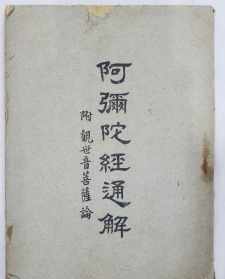 阿彌陀經通解
附觀世音菩薩論